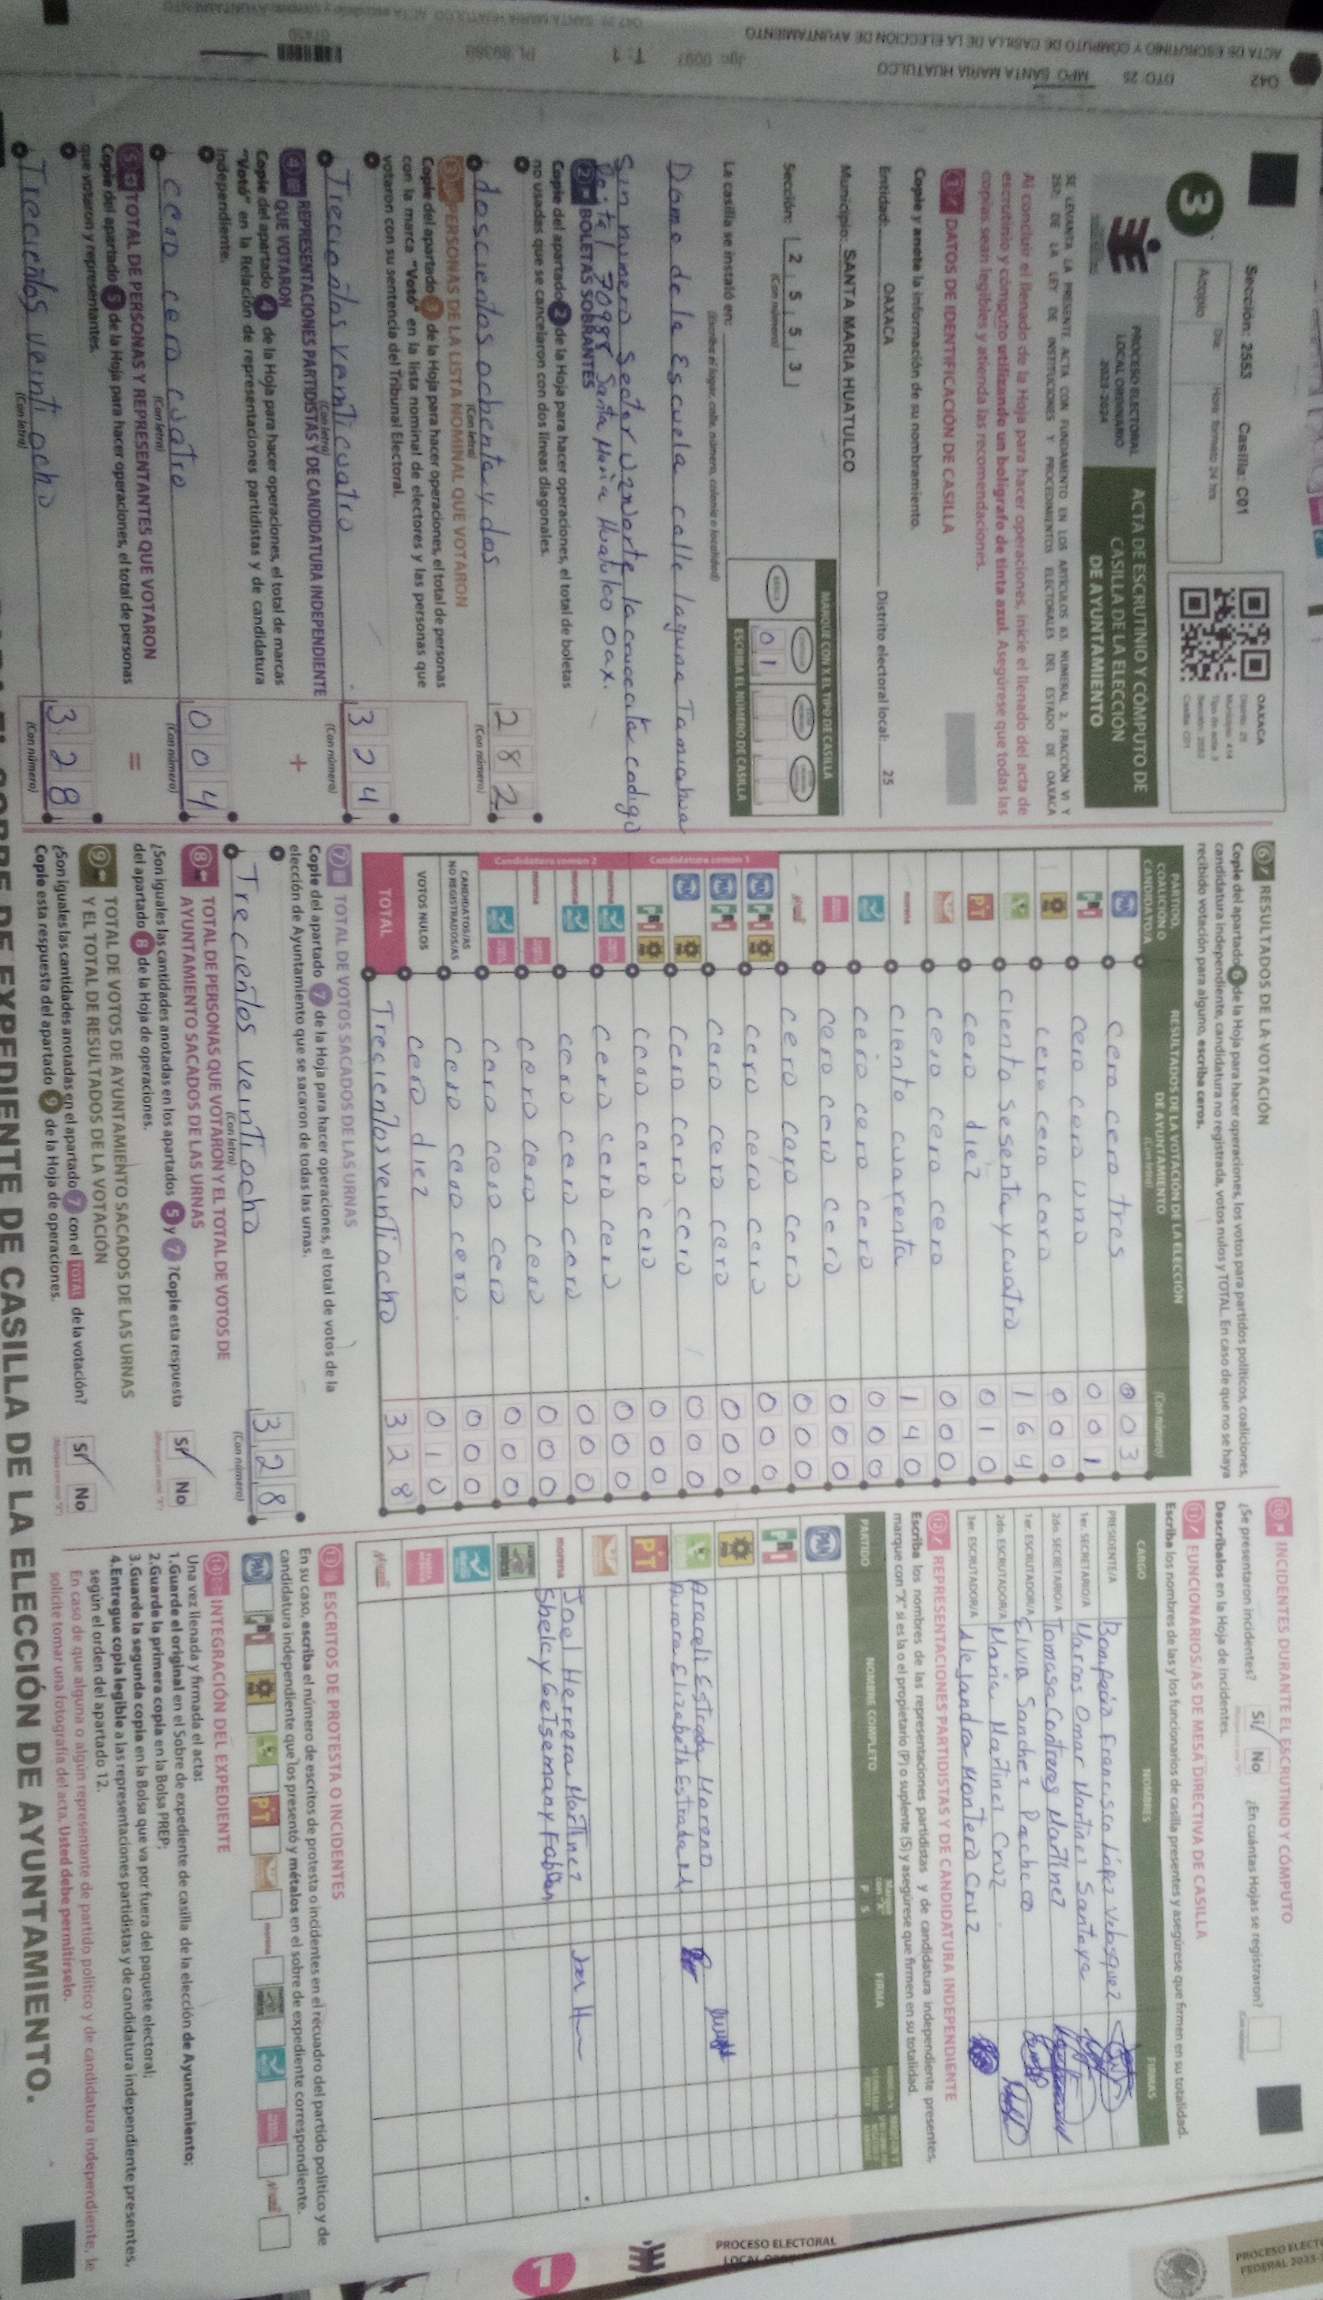 ACTA DE ESCRUTINIO Y CÓMPUTO DE CASILLA DE LA ELECCIÓN DE AYUNTAMIENTO
042 DTO: 25 MPO: SANTA MARIA HUATULCO
Sección: 2553 Casilla: C01
3
Acopio
Día:
Hora: formato 24 hrs
OAXACA
PROCESO ELECTORAL
LOCAL ORDINARIO
2023-2024
ACTA DE ESCRUTINIO Y CÓMPUTO DE
CASILLA DE LA ELECCIÓN
DE AYUNTAMIENTO
SE LEVANTA LA PRESENTE ACTA CON FUNDAMENTO EN LOS ARTÍCULOS 83, NUMERAL 2, FRACCIÓN VI Y
257; DE LA LEY DE INSTITUCIONES Y PROCEDIMIENTOS ELECTORALES DEL ESTADO DE OAXACA
Al concluir el llenado de la Hoja para hacer operaciones, inicie el llenado del acta de
escrutinio y cómputo utilizando un bolígrafo de tinta azul. Asegúrese que todas las
copias sean legibles y atienda las recomendaciones.
1 DATOS DE IDENTIFICACIÓN DE CASILLA
Copie y anote la información de su nombramiento.
Entidad: OAXACA Distrito electoral local: 25
Municipio: SANTA MARIA HUATULCO
MARQUE CON X EL TIPO DE CASILLA
Sección: 2 5 5 3
(Con número)
0 1
ESCRIBA EL NÚMERO DE CASILLA
La casilla se instaló en:
(Escriba el lugar, calle, número, colonia o localidad)
Domo de la Escuela calle laguna Taniahua
Sin numero Sector U2 Norte la crucecita codigo
Postal 70988 Santa Maria Huatulco Oax.
2 BOLETAS SOBRANTES
Copie del apartado 2 de la Hoja para hacer operaciones, el total de boletas
no usadas que se cancelaron con dos líneas diagonales.
doscientos ochenta y dos 2 8 2
(Con letra) (Con número)
3 PERSONAS DE LA LISTA NOMINAL QUE VOTARON
Copie del apartado 3 de la Hoja para hacer operaciones, el total de personas
con la marca "Votó" en la lista nominal de electores y las personas que
votaron con su sentencia del Tribunal Electoral.
Trecientos veinticuatro 3 2 4
(Con letra) (Con número)
4 REPRESENTACIONES PARTIDISTAS Y DE CANDIDATURA INDEPENDIENTE
QUE VOTARON +
Copie del apartado 4 de la Hoja para hacer operaciones, el total de marcas
"Votó" en la Relación de representaciones partidistas y de candidatura
independiente.
cero cero cuatro 0 0 4
(Con letra) (Con número)
5 TOTAL DE PERSONAS Y REPRESENTANTES QUE VOTARON =
Copie del apartado 5 de la Hoja para hacer operaciones, el total de personas
que votaron y representantes.
Trecientos veintiocho 3 2 8
(Con letra) (Con número)
6 RESULTADOS DE LA VOTACIÓN
Copie del apartado 6 de la Hoja para hacer operaciones, los votos para partidos políticos, coaliciones,
candidatura independiente, candidatura no registrada, votos nulos y TOTAL. En caso de que no se haya
recibido votación para alguno, escriba ceros.
PARTIDO, COALICIÓN O CANDIDATO/A
RESULTADOS DE LA VOTACIÓN DE LA ELECCIÓN DE AYUNTAMIENTO
(Con letra) (Con número)
PAN cero cero tres 0 0 3
PRI cero cero uno 0 0 1
cero cero cero 0 0 0
ciento sesenta y cuatro 1 6 4
PT cero diez 0 1 0
cero cero cero 0 0 0
morena ciento cuarenta 1 4 0
cero cero cero 0 0 0
cero cero cero 0 0 0
cero cero cero 0 0 0
Candidatura común 1
cero cero cero 0 0 0
cero cero cero 0 0 0
cero cero cero 0 0 0
cero cero cero 0 0 0
Candidatura común 2
cero cero cero 0 0 0
cero cero cero 0 0 0
cero cero cero 0 0 0
cero cero cero 0 0 0
CANDIDATOS/AS NO REGISTRADOS/AS cero cero cero 0 0 0
VOTOS NULOS cero diez 0 1 0
TOTAL Trecientos veintiocho 3 2 8
7 TOTAL DE VOTOS SACADOS DE LAS URNAS
Copie del apartado 7 de la Hoja para hacer operaciones, el total de votos de la
elección de Ayuntamiento que se sacaron de todas las urnas.
Trecientos veintiocho 3 2 8
(Con letra) (Con número)
8 TOTAL DE PERSONAS QUE VOTARON Y EL TOTAL DE VOTOS DE
AYUNTAMIENTO SACADOS DE LAS URNAS
¿Son iguales las cantidades anotadas en los apartados 5 y 7? Copie esta respuesta
del apartado 8 de la Hoja de operaciones.
Sí No
9 TOTAL DE VOTOS DE AYUNTAMIENTO SACADOS DE LAS URNAS
Y EL TOTAL DE RESULTADOS DE LA VOTACIÓN
¿Son iguales las cantidades anotadas en el apartado 7 con el TOTAL de la votación?
Copie esta respuesta del apartado 9 de la Hoja de operaciones.
Sí No
10 INCIDENTES DURANTE EL ESCRUTINIO Y CÓMPUTO
¿Se presentaron incidentes? Sí No ¿En cuántas Hojas se registraron?
Descríbalos en la Hoja de incidentes.
11 FUNCIONARIOS/AS DE MESA DIRECTIVA DE CASILLA
Escriba los nombres de las y los funcionarios de casilla presentes y asegúrese que firmen en su totalidad.
CARGO NOMBRES FIRMAS
PRESIDENTE/A Bonifacia Francisca López Velasquez
1er. SECRETARIO/A Marcos Omar Martinez Santaya
2do. SECRETARIO/A Tomasa Contreras Martinez
1er. ESCRUTADOR/A Elvia Sanchez Pacheco
2do. ESCRUTADOR/A Maria Martinez Cruz
3er. ESCRUTADOR/A Alejandra Montero Cruz
12 REPRESENTACIONES PARTIDISTAS Y DE CANDIDATURA INDEPENDIENTE
Escriba los nombres de las representaciones partidistas y de candidatura independiente presentes,
marque con "X" si es la o el propietario (P) o suplente (S) y asegúrese que firmen en su totalidad.
PARTIDO NOMBRE COMPLETO P S FIRMA
PAN
PRI
Araceli Estrada Moreno
Aurora Elizabeth Estrada
PT
morena Joel Herrera Martinez
Sheley Getsemany Fabian
13 ESCRITOS DE PROTESTA O INCIDENTES
En su caso, escriba el número de escritos de protesta o incidentes en el recuadro del partido político y de
candidatura independiente que los presentó y métalos en el sobre de expediente correspondiente.
PAN PRI PT morena
14 INTEGRACIÓN DEL EXPEDIENTE
Una vez llenada y firmada el acta:
1.Guarde el original en el Sobre de expediente de casilla de la elección de Ayuntamiento;
2.Guarde la primera copia en la Bolsa PREP;
3.Guarde la segunda copia en la Bolsa que va por fuera del paquete electoral;
4.Entregue copia legible a las representaciones partidistas y de candidatura independiente presentes,
según el orden del apartado 12.
En caso de que alguna o algún representante de partido político y de candidatura independiente, le
solicite tomar una fotografía del acta. Usted debe permitírselo.
DE EXPEDIENTE DE CASILLA DE LA ELECCIÓN DE AYUNTAMIENTO.
PROCESO ELECTORAL
1